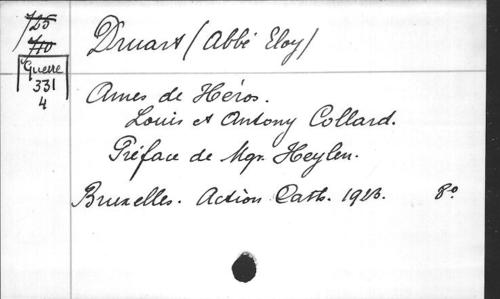 725
710
Guerre
331
4
Druart (Abbé Eloy)
Ames de Héros.
Louis et Antony Collard.
Préface de Mgr. Heylen.
Bruxelles. Action Cath. 1923. 8°